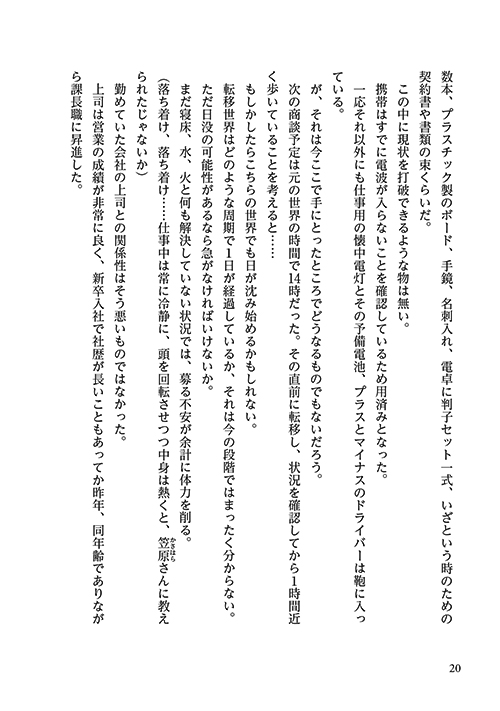 数本、プラスチック製のボード、手鏡、名刺入れ、電卓に判子セット一式、いざという時のための
契約書や書類の束くらいだ。
この中に現状を打破できるような物は無い。
携帯はすでに電波が入らないことを確認しているため用済みとなった。
一応それ以外にも仕事用の懐中電灯とその予備電池、プラスとマイナスのドライバーは鞄に入っ
ている。
が、それは今ここで手にとったところでどうなるものでもないだろう。
次の商談予定は元の世界の時間で14時だった。その直前に転移し、状況を確認してから１時間近
く歩いていることを考えると……
もしかしたらこちらの世界でも日が沈み始めるかもしれない。
転移世界はどのような周期で１日が経過しているか、それは今の段階ではまったく分からない。
ただ日没の可能性があるなら急がなければいけないか。
まだ寝床、水、火と何も解決していない状況では、募る不安が余計に体力を削る。
(落ち着け、落ち着け……仕事中は常に冷静に、頭を回転させつつ中身は熱くと、笠原さんに教え
かさはら
られたじゃないか)
勤めていた会社の上司との関係性はそう悪いものではなかった。
上司は営業の成績が非常に良く、新卒入社で社歴が長いこともあってか昨年、同年齢でありなが
ら課長職に昇進した。
20